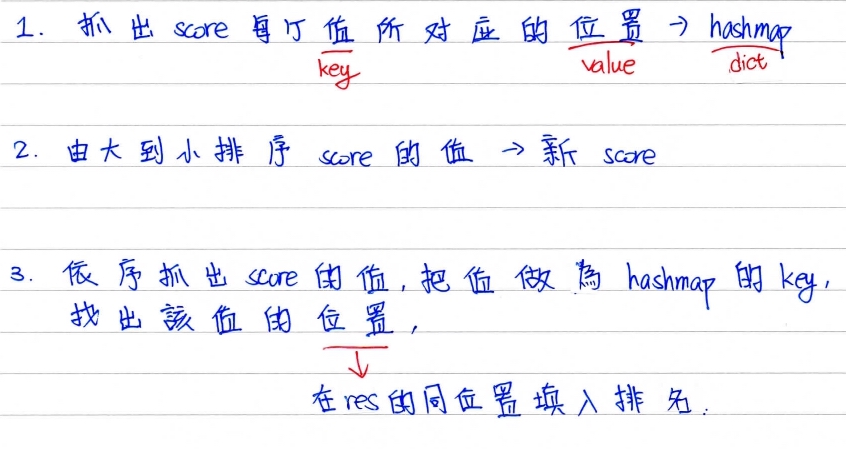 1. 抓出 score 每个值所对应的位置 → hashmap
key value dict
2. 由大到小排序 score 的值 → 新 score
3. 依序抓出 score 的值,把值做為 hashmap 的 key,
找出該值的位置,
↓
在 res 的同位置填入排名.